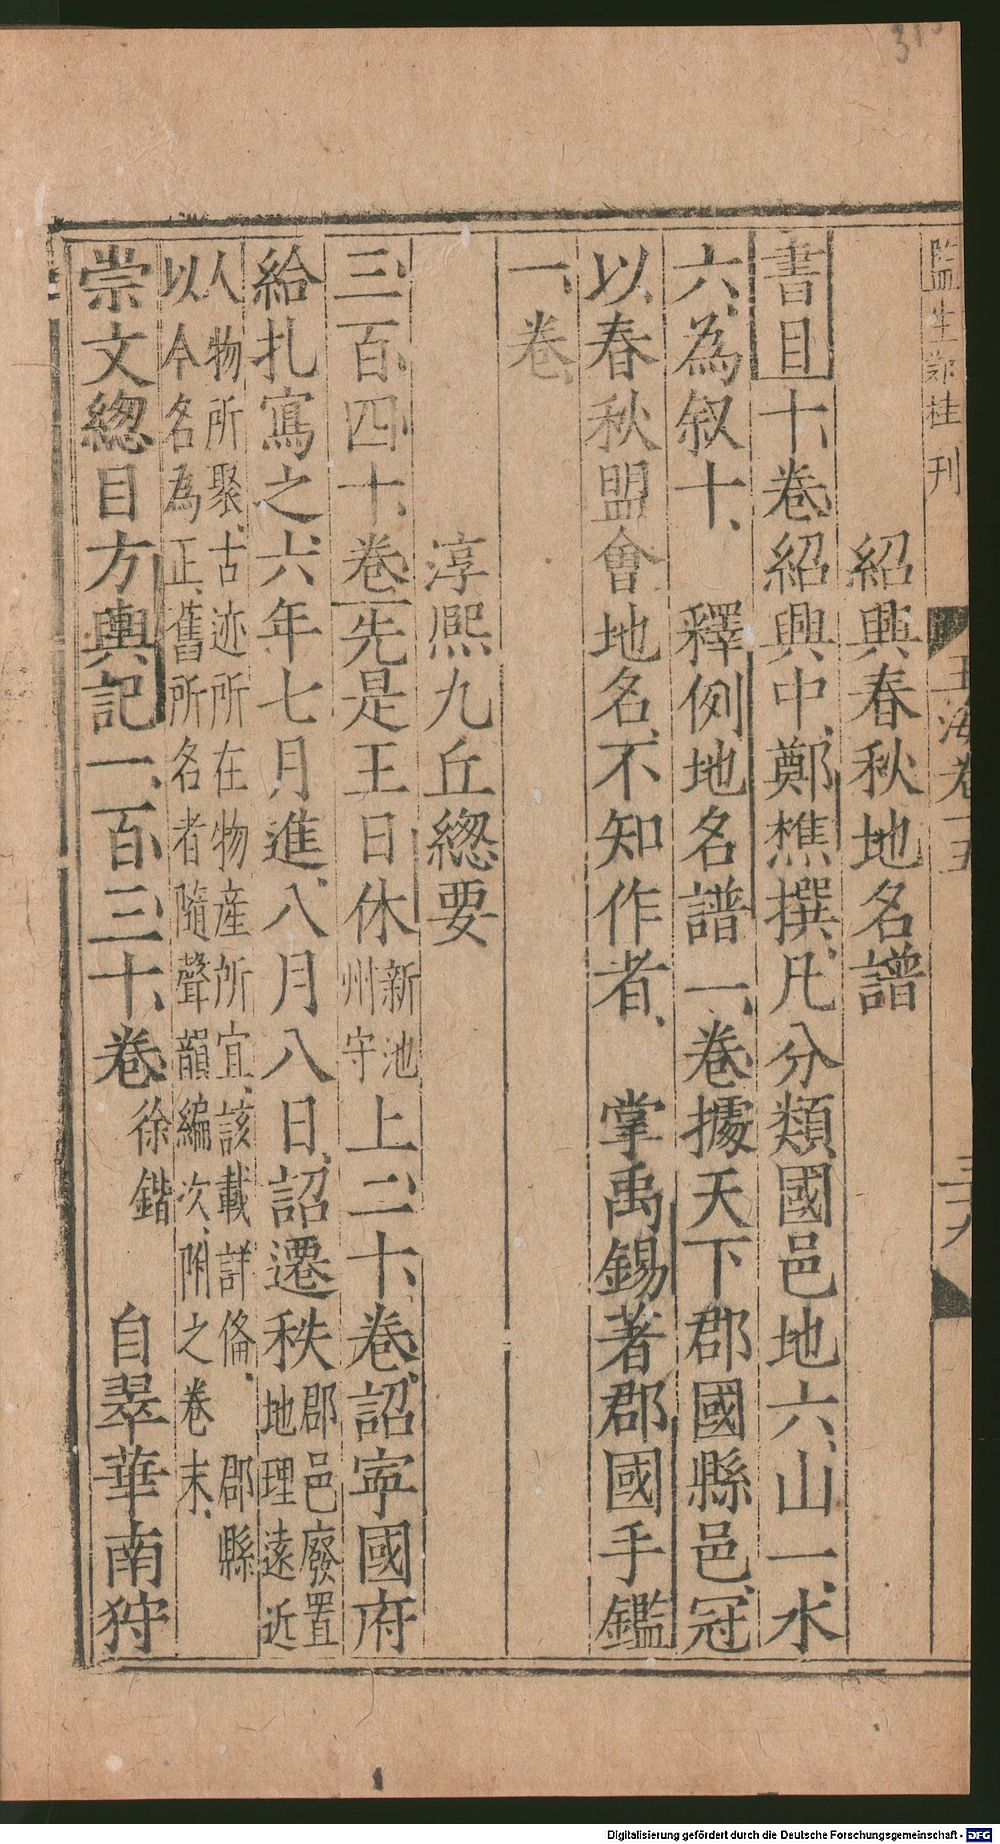 監生鄭桂刊
玉海卷十五
三十九
紹興春秋地名譜
書目十卷紹興中鄭樵撰凡分類國邑地六山一水
六為叙十 釋例地名譜一卷據天下郡國縣邑冠
以春秋盟會地名不知作者 掌禹錫著郡國手鑑
一卷
淳熙九丘緫要
三百四十卷先是王日休新池州守上二十卷詔寧國府
給札寫之六年七月進八月八日詔遷秩郡邑廢置地理遠近
人物所聚古迹所在物產所宜該載詳俻 郡縣
以今名為正舊所名者隨聲韻編次附之卷末
崇文緫目方輿記一百三十卷徐鍇 自翠華南狩
Digitalisierung gefördert durch die Deutsche Forschungsgemeinschaft - DFG